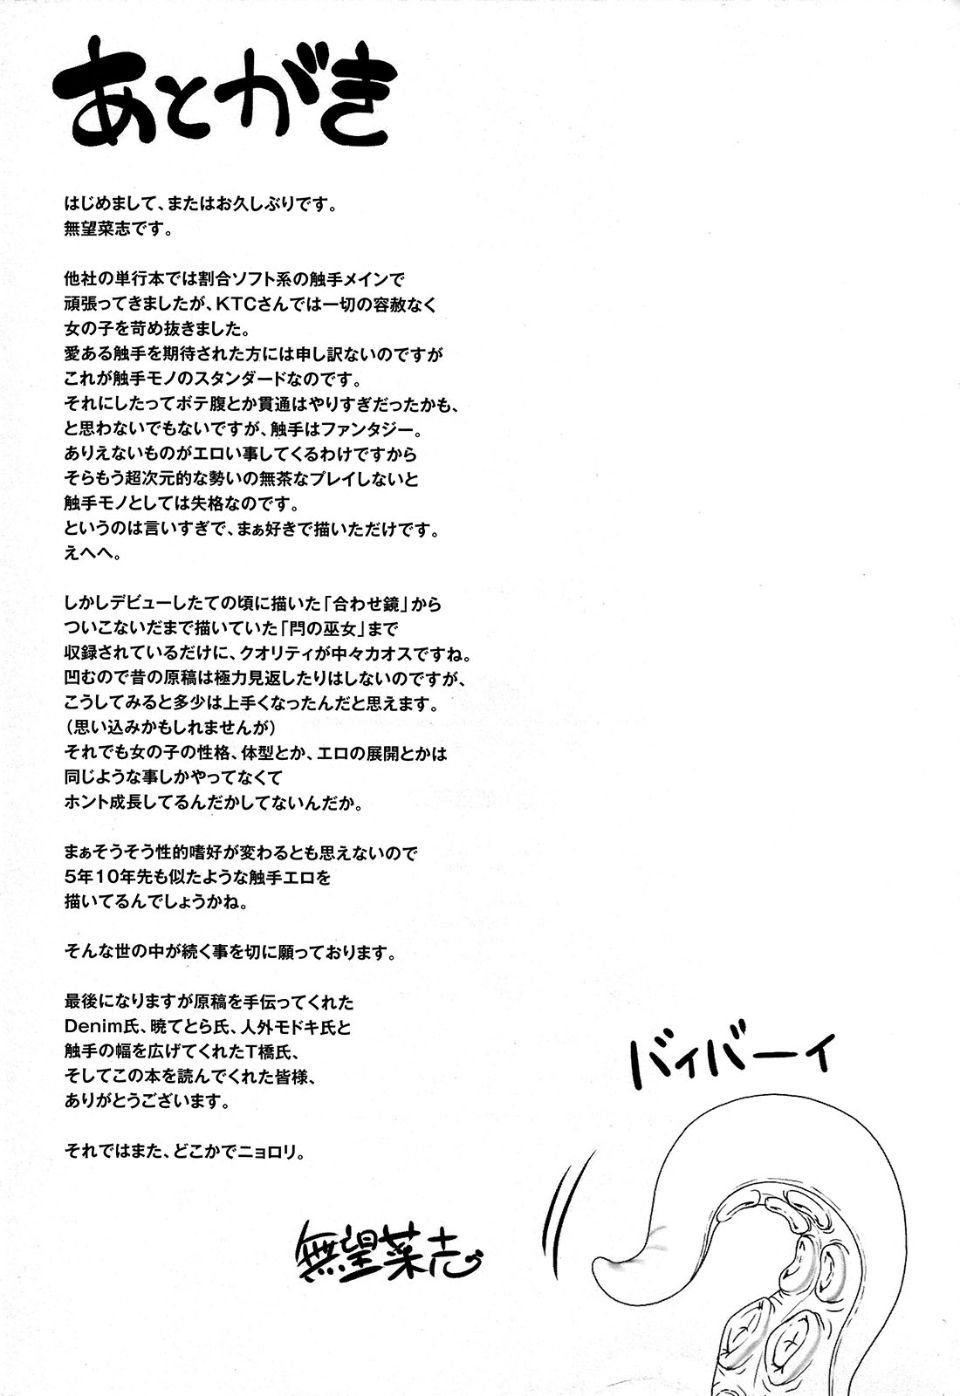 あとがき
はじめまして、またはお久しぶりです。
無望菜志です。
他社の単行本では割合ソフト系の触手メインで
頑張ってきましたが、KTCさんでは一切の容赦なく
女の子を苛め抜きました。
愛ある触手を期待された方には申し訳ないのですが
これが触手モノのスタンダードなのです。
それにしたってボテ腹とか貫通はやりすぎだったかも、
と思わないでもないですが、触手はファンタジー。
ありえないものがエロい事してくるわけですから
そらもう超次元的な勢いの無茶なプレイしないと
触手モノとしては失格なのです。
というのは言いすぎで、まぁ好きで描いただけです。
えへへ。
しかしデビューしたての頃に描いた「合わせ鏡」から
ついこないだまで描いていた「閂の巫女」まで
収録されているだけに、クオリティが中々カオスですね。
凹むので昔の原稿は極力見返したりはしないのですが、
こうしてみると多少は上手くなったんだと思えます。
（思い込みかもしれませんが）
それでも女の子の性格、体型とか、エロの展開とかは
同じような事しかやってなくて
ホント成長してるんだかしてないんだか。
まぁそうそう性的嗜好が変わるとも思えないので
5年10年先も似たような触手エロを
描いてるんでしょうかね。
そんな世の中が続く事を切に願っております。
最後になりますが原稿を手伝ってくれた
Denim氏、暁てとら氏、人外モドキ氏と
触手の幅を広げてくれたT橋氏、
そしてこの本を読んでくれた皆様、
ありがとうございます。
それではまた、どこかでニョロリ。
バイバーイ
無望菜志